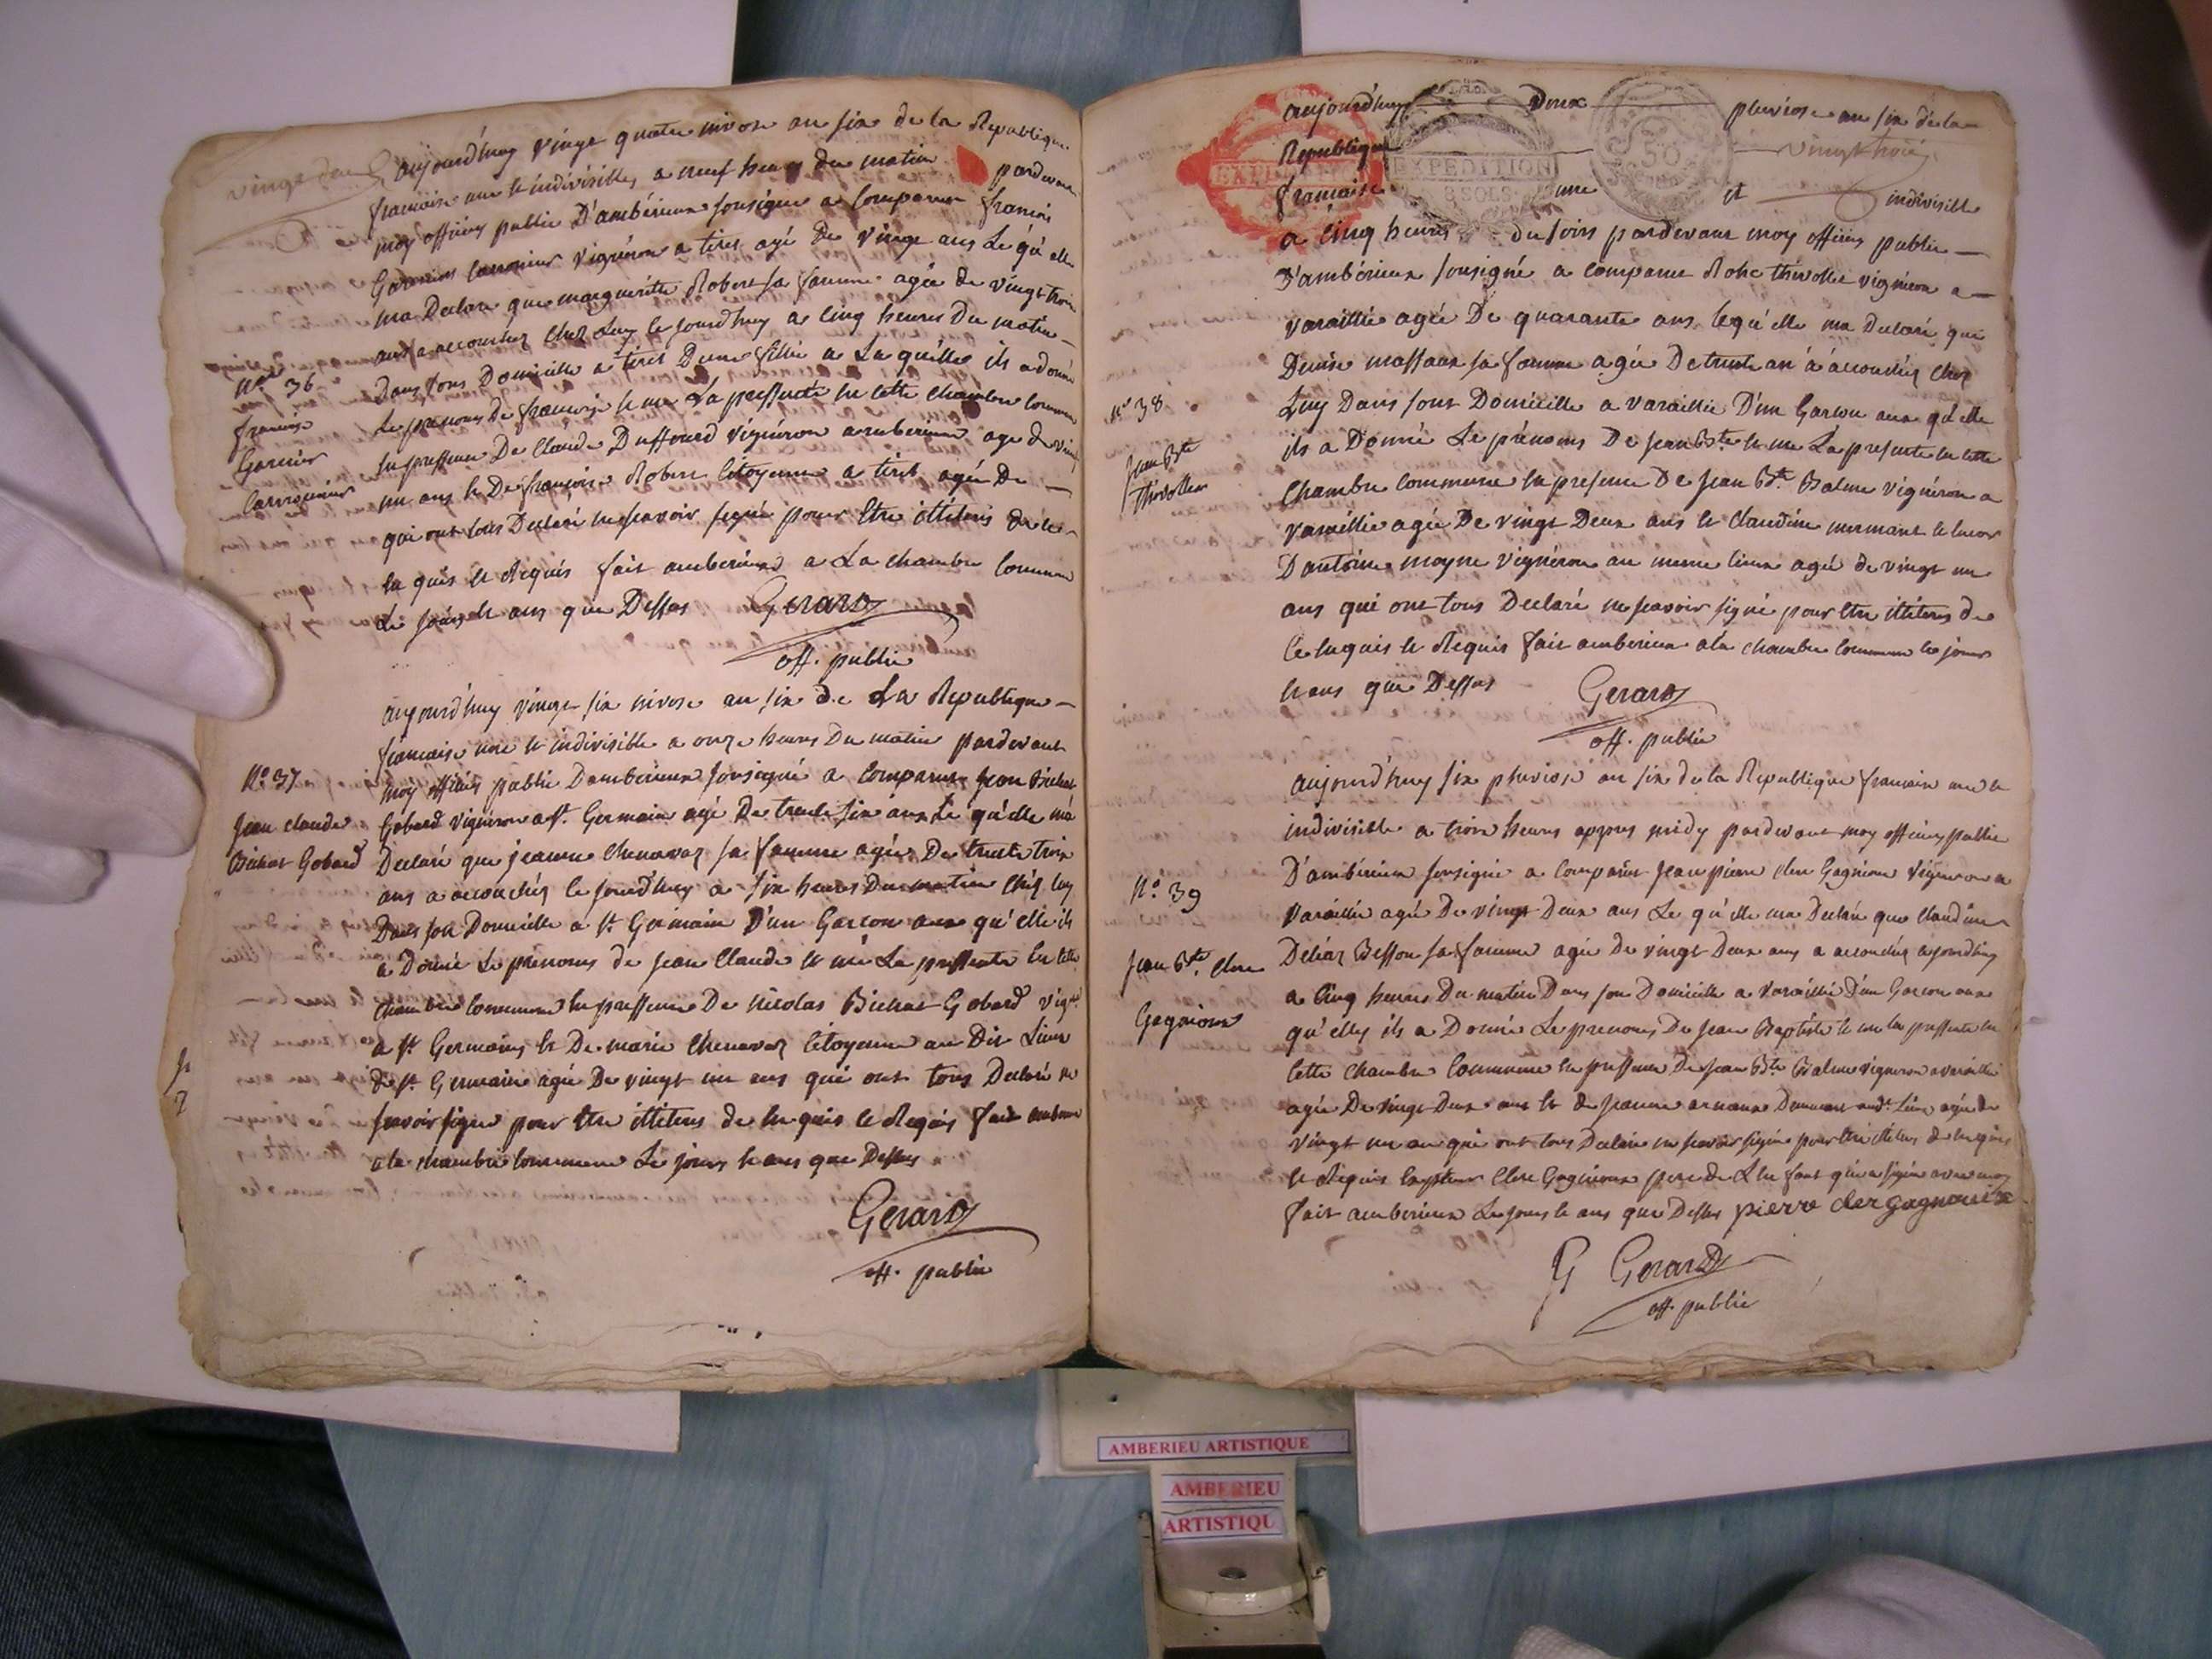 vingt deux
aujourd'huy vingt quatre nivose an six de la Republique
francaise une et indivisible, a neuf heures du matin pardevant
moy officier public D'ambérieux sousigné a comparue francois
Garnier vignéron a tiret agé de vingt ans Le qu'elle
ma Declaré que marguéritte Robert sa famme agée de vingt trois
ans a accouchéz chez Luy le jourdhuy a cinq heures du matin
dans sons Domicille a tiret D'une fillie a La quélle ils a donné
Le prenoms de francoise et me La pressenté en cette chambre commune
En pressence De Claude Duffourd vignéron amberieux age de vingt
un ans et De francoise Robert citoyenne a tiret agée De
qui ont tous Declaré ne scavoir signé pour Etre illiteris de ce
en quis et Requis fait amberieux a La chambre commune
Le jours et ans que Dessus Gerard
off. public
N.o 36
francoise
Garnier
aujourd'huy vingt six nivose an six de La Republique
francaise une et indivisible a onze heures Du matin pardevant
moy officier public Damberieux sousigné a comparus jean Bichat
Gobard vignéron a St. Germain agé De trente six ans Le qu'elle ma
Declaré que jeanne chenavaz sa famme agée De trente trois
ans a accouchéz le jourdhuy a six heures Du matin chéz luy
Dans son Domicille a St Germain D'un Garcon aux qu'elle ils
a Donné Le prenoms de jean Claude et me La pressenté En cette
chambre commune En pressence De nicolas Bichat Gobard vign.
a St Germains et De marie chenavaz citoyenne au Dit Lieux
de St Germain agée De vingt un ans qui ont tous Declaré ne
scavoir signé pour Etre illiteris de en quis et Requis fait amberieux
a la chambre commune Le jours et ans que Dessus
Gerard
off. public
N.o 37
jean claude
Bichat Gobard
aujourd'huy Deux pluviose an six de la
Republique vingt trois
francaise une et indivisible
EXPEDITION
EXPEDITION
8 SOLS
50
a cinq heures du soirs pardevant moy officier public
D'ambérieux sousigné a comparue Rohc thivollier vignéron a
varaillie agée De quarante ans, lequ'elle ma Declaré que
Denise massaux sa famme agée De trente an a accouchéz chez
Luy Dans sont Domicille a varaillie D'un Garcon aux qu'elle
ils a Donné Le prénoms De jean Bte et me La presente en cette
chambre commune En presence De jean Bte Balme vignéron a
varaillie agée De vingt Deux ans et claudine
D'antoine moyne vignéron au meme lieux agée de vingt un
ans qui ont tous Declaré ne scavoir signé pour Etre illiteres de
ce enquis et Requis fait amberieux a la chambre commune les jours
et ans que Dessus Gerard
off. public
N.o 38
jean Bte
thivollier
aujourd'huy six pluviose an six de la Republique francaise une et
indivisible a trois heures appres midy pardevant moy officier public
D'ambérieux sousigné a comparus jean pierre clere Gagnioux vigneron a
varaillie agée De vingt Deux ans Le qu'elle ma Declaré que claudine
Besson sa famme agée De vingt Deux ans a accouchéz ajourdhuy
a cinq heures Du matin Dans son Domicille a varaillie D'un Garcon aux
qu'elles ils a Donné Le prenoms De jean Baptiste et me la pressente en
cette chambre commune En pressence De jean Bte Balme vigneron a varaillie
agée De vingt Deux ans et de jeanne au dt Lieux agée de
vingt un an qui ont tous Declaré ne scavoir signé pour Etre illiteres de enquis
et Requis clere Gagnioux pere de L'enfant qui a signé avec moy
fait amberieux Les jours et ans que Dessus pierre cler gagnoux
G Gerard
off. public
N.o 39
jean Bte. clere
Gagnioux
AMBERIEU ARTISTIQUE
AMBERIEU
ARTISTIQU